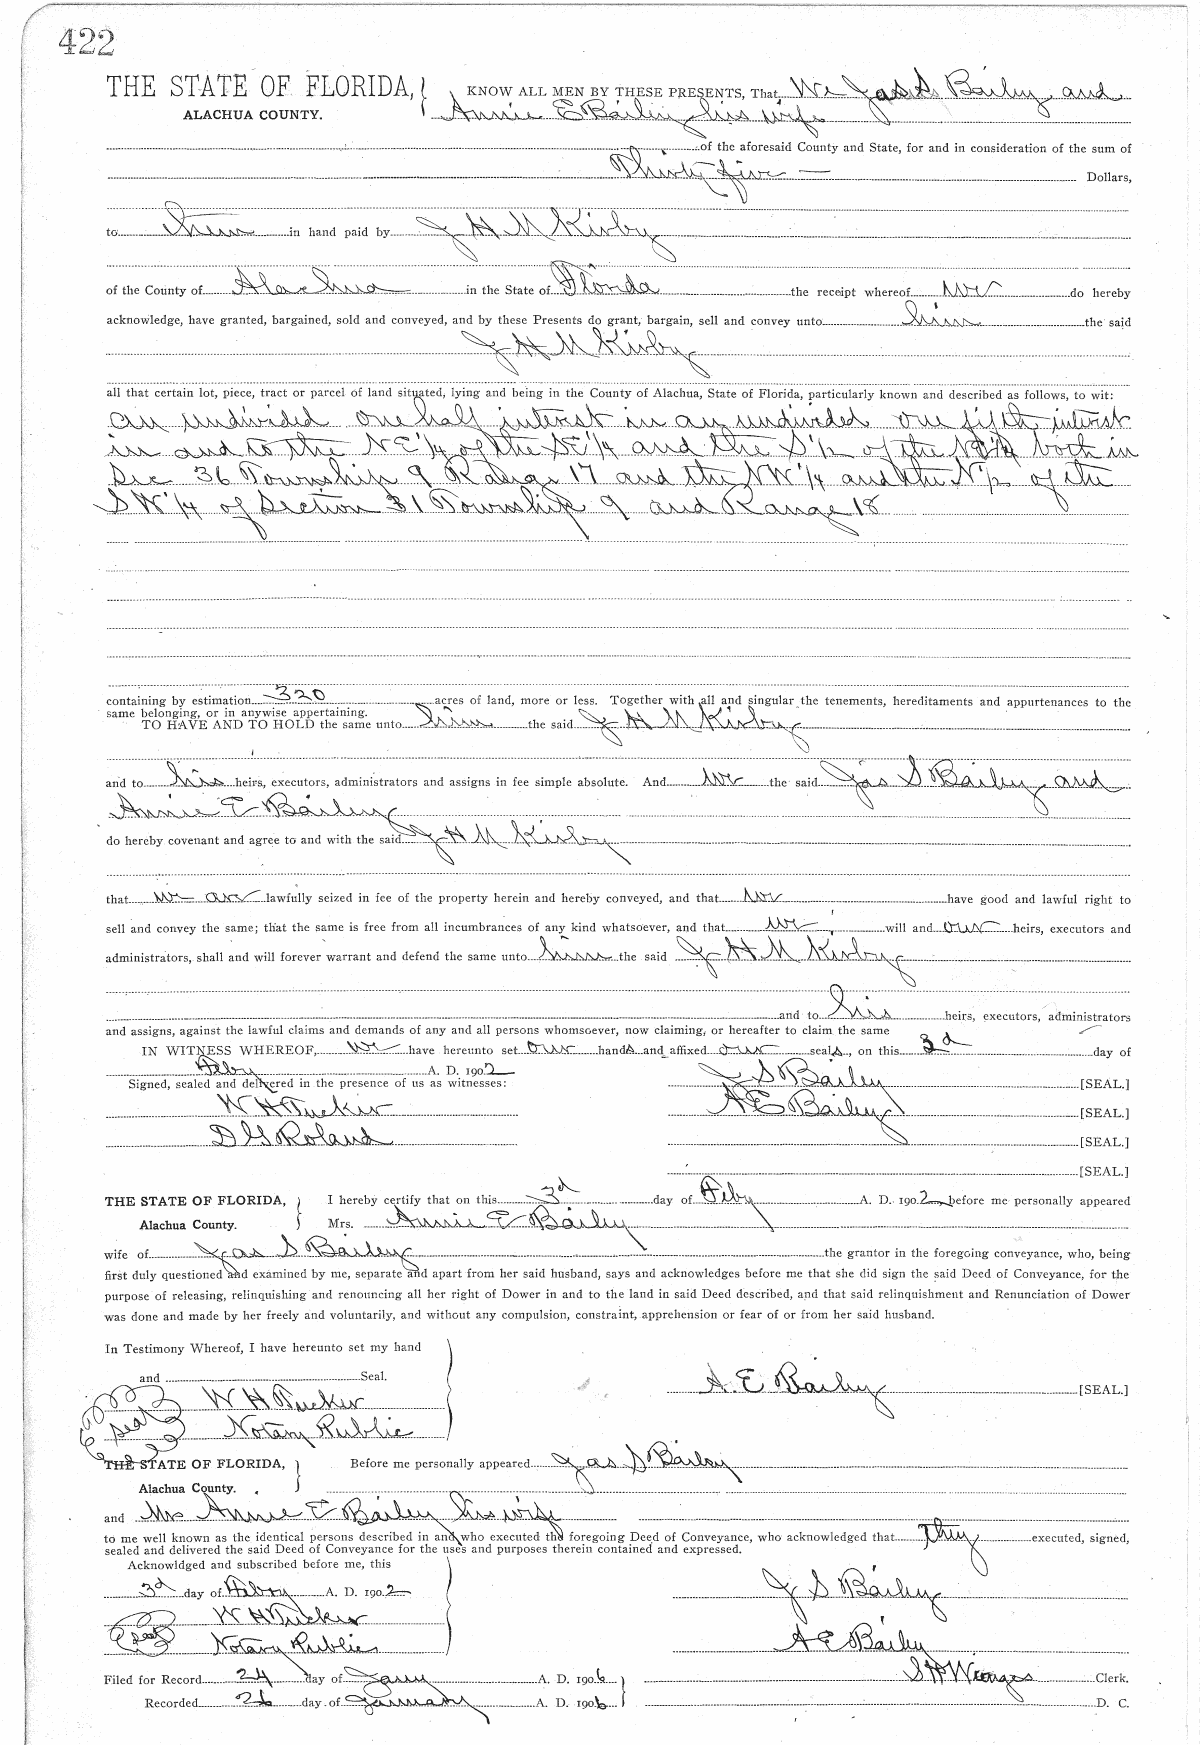 422
THE STATE OF FLORIDA, KNOW ALL MEN BY THESE PRESENTS, That We Jas S. Bailey and
ALACHUA COUNTY. Annie E Bailey his wife
of the aforesaid County and State, for and in consideration of the sum of
Thirty five — Dollars,
to them in hand paid by J H M Kirby
of the County of Alachua in the State of Florida the receipt whereof we do hereby
acknowledge, have granted, bargained, sold and conveyed, and by these Presents do grant, bargain, sell and convey unto him the said
J H M Kirby
all that certain lot, piece, tract or parcel of land situated, lying and being in the County of Alachua, State of Florida, particularly known and described as follows, to wit:
an undivided one half interest in an undivided one fifth interest
in and to the NE 1/4 of the SE 1/4 and the S 1/2 of the both in
Sec 36 Township 9 Range 17 and the NW 1/4 and the N 1/2 of the
SW 1/4 of Section 31 Township 9 and Range 18
containing by estimation 320 acres of land, more or less. Together with all and singular the tenements, hereditaments and appurtenances to the
same belonging, or in anywise appertaining.
TO HAVE AND TO HOLD the same unto him the said J H M Kirby
and to his heirs, executors, administrators and assigns in fee simple absolute. And we the said Jas S Bailey and
Annie E Bailey
do hereby covenant and agree to and with the said J H M Kirby
that we are lawfully seized in fee of the property herein and hereby conveyed, and that we have good and lawful right to
sell and convey the same; that the same is free from all incumbrances of any kind whatsoever, and that we will and our heirs, executors and
administrators, shall and will forever warrant and defend the same unto him the said J H M Kirby
and to his heirs, executors, administrators
and assigns, against the lawful claims and demands of any and all persons whomsoever, now claiming, or hereafter to claim the same
IN WITNESS WHEREOF, we have hereunto set our hands and affixed our seals, on this 3d day of
Feby A. D. 1902
Signed, sealed and delivered in the presence of us as witnesses: J S Bailey [SEAL.]
W H Tucker A E Bailey [SEAL.]
D G Roland [SEAL.]
[SEAL.]
THE STATE OF FLORIDA, I hereby certify that on this 3d day of Feby A. D. 1902 before me personally appeared
Alachua County. Mrs. Annie E Bailey
wife of Jas S Bailey the grantor in the foregoing conveyance, who, being
first duly questioned and examined by me, separate and apart from her said husband, says and acknowledges before me that she did sign the said Deed of Conveyance, for the
purpose of releasing, relinquishing and renouncing all her right of Dower in and to the land in said Deed described, and that said relinquishment and Renunciation of Dower
was done and made by her freely and voluntarily, and without any compulsion, constraint, apprehension or fear of or from her said husband.
In Testimony Whereof, I have hereunto set my hand
and Seal. A. E Bailey [SEAL.]
W H Tucker
seal Notary Public
THE STATE OF FLORIDA, Before me personally appeared Jas S Bailey
Alachua County.
and Mrs Annie E Bailey his wife
to me well known as the identical persons described in and who executed the foregoing Deed of Conveyance, who acknowledged that they executed, signed,
sealed and delivered the said Deed of Conveyance for the uses and purposes therein contained and expressed.
Acknowldged and subscribed before me, this
3d day of Febry A. D. 1902 J S Bailey
W H Tucker
seal Notary Public A E Bailey
Filed for Record 24 day of Jany A. D. 1906 S H Wienges Clerk.
Recorded 26 day of January A. D. 1906 D. C.